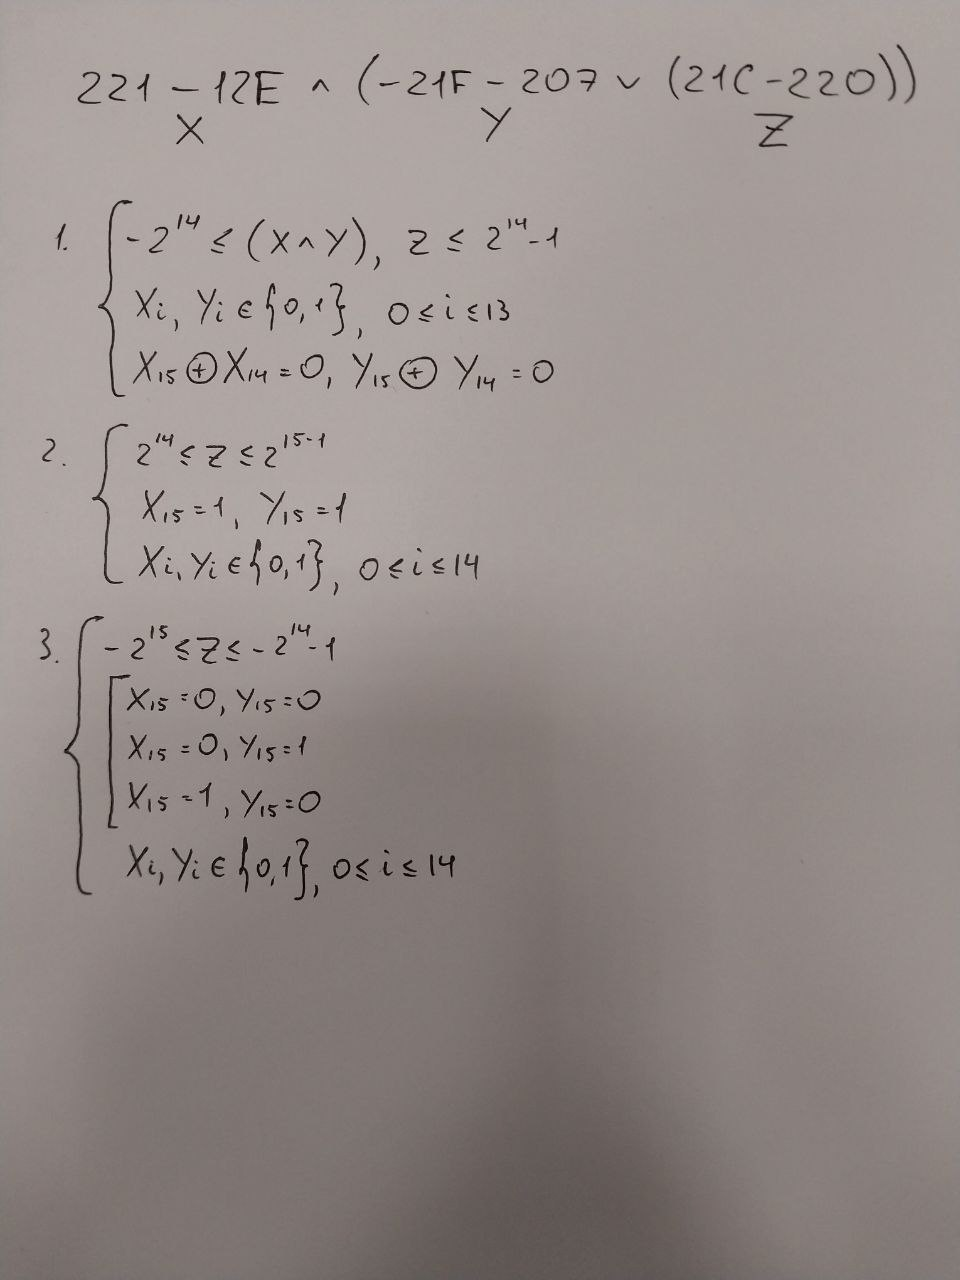 221 – 12E ∧ (-21F – 207 ∨ (21C - 220))
X Y Z
1. -2¹⁴ ≤ (X∧Y), Z ≤ 2¹⁴-1
Xi, Yi ∈ {0,1}, 0≤i≤13
X₁₅ ⊕ X₁₄ = 0, Y₁₅ ⊕ Y₁₄ = 0
2. 2¹⁴ ≤ Z ≤ 2¹⁵⁻¹
X₁₅ = 1, Y₁₅ = 1
Xi, Yi ∈ {0,1}, 0≤i≤14
3. -2¹⁵ ≤ Z ≤ -2¹⁴-1
X₁₅ = 0, Y₁₅ = 0
X₁₅ = 0, Y₁₅ = 1
X₁₅ = 1, Y₁₅ = 0
Xi, Yi ∈ {0,1}, 0≤i≤14